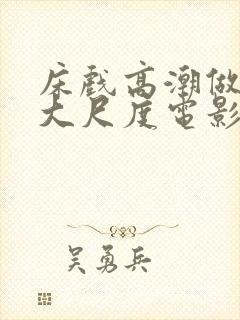 床戲高潮做
大尺度電影
吴勇兵